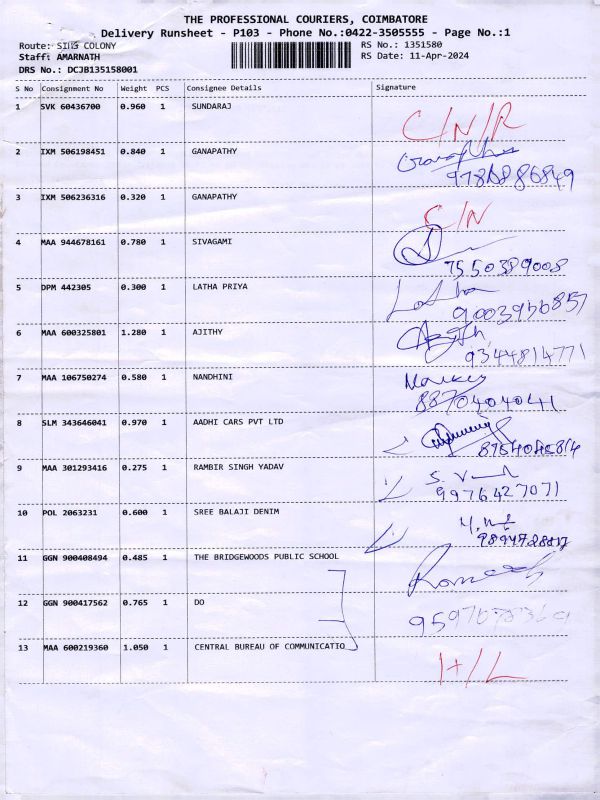 THE PROFESSIONAL COURIERS, COIMBATORE
Delivery Runsheet - P103 - Phone No.:0422-3505555 - Page No.:1
Route: COLONY
Staff: AMARNATH
DRS No.: DCJB135158001
RS No.: 1351580
RS Date: 11-Apr-2024
S No Consignment No Weight PCS Consignee Details Signature
1 SVK 60436700 0.960 1 SUNDARAJ C/N/R
2 IXM 506198451 0.840 1 GANAPATHY
3 IXM 506236316 0.320 1 GANAPATHY C/N
4 MAA 944678161 0.780 1 SIVAGAMI 7550389008
5 DPM 442305 0.300 1 LATHA PRIYA Latha
6 MAA 600325801 1.280 1 AJITHY 9344814771
7 MAA 106750274 0.580 1 NANDHINI 8870404041
8 SLM 343646041 0.970 1 AADHI CARS PVT LTD
9 MAA 301293416 0.275 1 RAMBIR SINGH YADAV 9976427071
10 POL 2063231 0.600 1 SREE BALAJI DENIM
11 GGN 900408494 0.485 1 THE BRIDGEWOODS PUBLIC SCHOOL
12 GGN 900417562 0.765 1 DO
13 MAA 600219360 1.050 1 CENTRAL BUREAU OF COMMUNICATIO